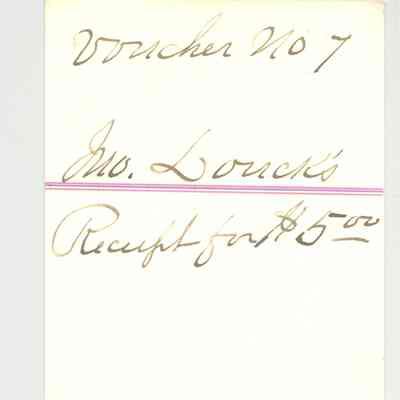 Voucher No 7
Jno. Louck's
Receipt for $5.00